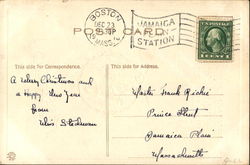 BOSTON
DEC 23
MASS.
JAMAICA
STATION
POST CARD
This side for Correspondence.
This side for Address.
A Merry Christmas and
a Happy New Year
from
Miss
Master Frank Ritchie
Prince Street
Jamaica Plain
Massachusetts